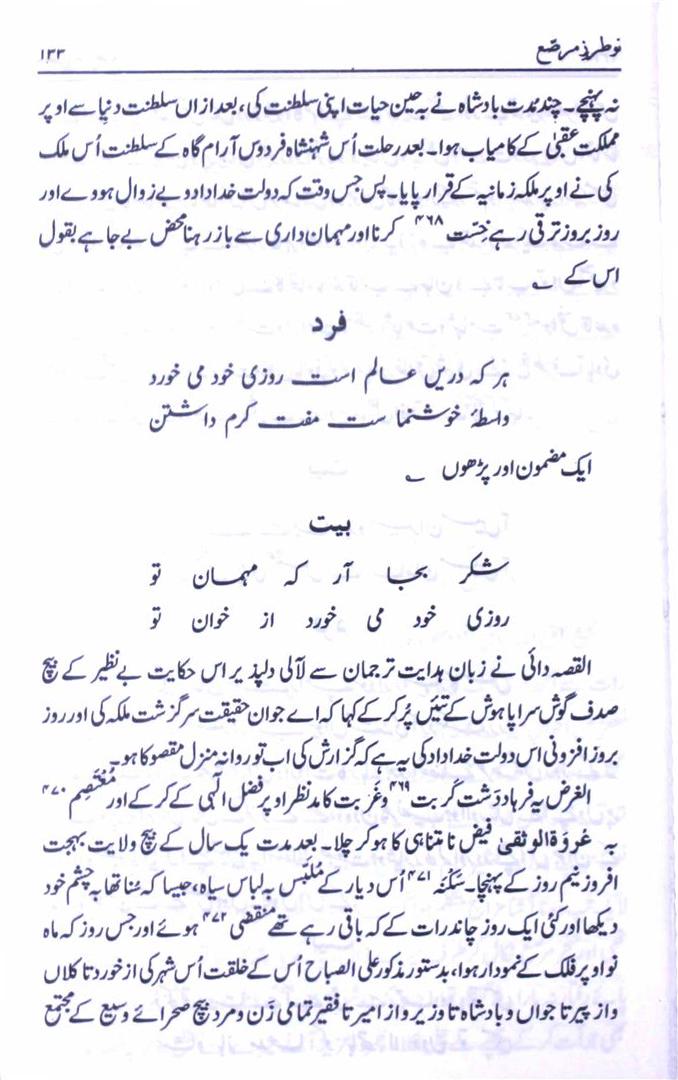 نو طرزِ مرصّع ۱۳۳
نہ پہنچے۔ چند مدت بادشاہ نے بہ حین حیات اپنی سلطنت کی، بعد ازاں سلطنت دنیا سے اوپر
مملکت عقبیٰ کے کامیاب ہوا۔ بعد رحلت اُس شہنشاہ فردوس آرام گاہ کے سلطنت اُس ملک
کی نے اوپر ملکہ زمانیہ کے قرار پایا۔ پس جس وقت کہ دولت خداداد و بے زوال ہووے اور
روز بروز ترقی رہے خِسّت ۴۶۸ کرنا اور مہمان داری سے باز رہنا محض بے جا ہے بقول
اس کے ؎
فرد
ہر کہ دریں عالم است روزی خود می خورد
واسطۂ خوشنما ست مفت کرم داشتن
ایک مضمون اور پڑھوں ؎
بیت
شکر بجا آر کہ مہمان تو
روزی خود می خورد از خوان تو
القصہ دائی نے زبان ہدایت ترجمان سے لآلی دلپذیر اس حکایت بے نظیر کے بیچ
صدف گوش سراپا ہوش کے تئیں پُر کر کے کہا کہ اے جوان حقیقت سرگزشت ملکہ کی اور روز
بروز افزونی اس دولت خداداد کی یہ ہے کہ گزارش کی اب تو روانہ منزل مقصو کا ہو۔
الغرض یہ فرہاد دَشت کُربت ۴۶۹ و غَربت کا مد نظر اوپر فضل الٰہی کے کر کے اور مُعْتَصِم ۴۷۰
بہ عُروَۃُ الوثقیٰ فیض نامتناہی کا ہو کر چلا۔ بعد مدت یک سال کے بیچ ولایت بہجت
افروز نیم روز کے پہنچا۔ سَکَنَہ ۴۷۱ اُس دیار کے مُلبّس بہ لباس سیاہ، جیسا کہ سُنا تھا بہ چشم خود
دیکھا اور کئی ایک روز چاند رات کے کہ باقی رہے تھے منقضی ۴۷۲ ہوئے اور جس روز کہ ماہ
نو اوپر فلک کے نمودار ہوا، بدستور مذکور علی الصباح اُس کے خلقت اُس شہر کی از خورد تا کلاں
و از پیر تا جواں و بادشاہ تا وزیر و از امیر تا فقیر تمامی زَن و مرد بیچ صحرائے وسیع کے مجتمع